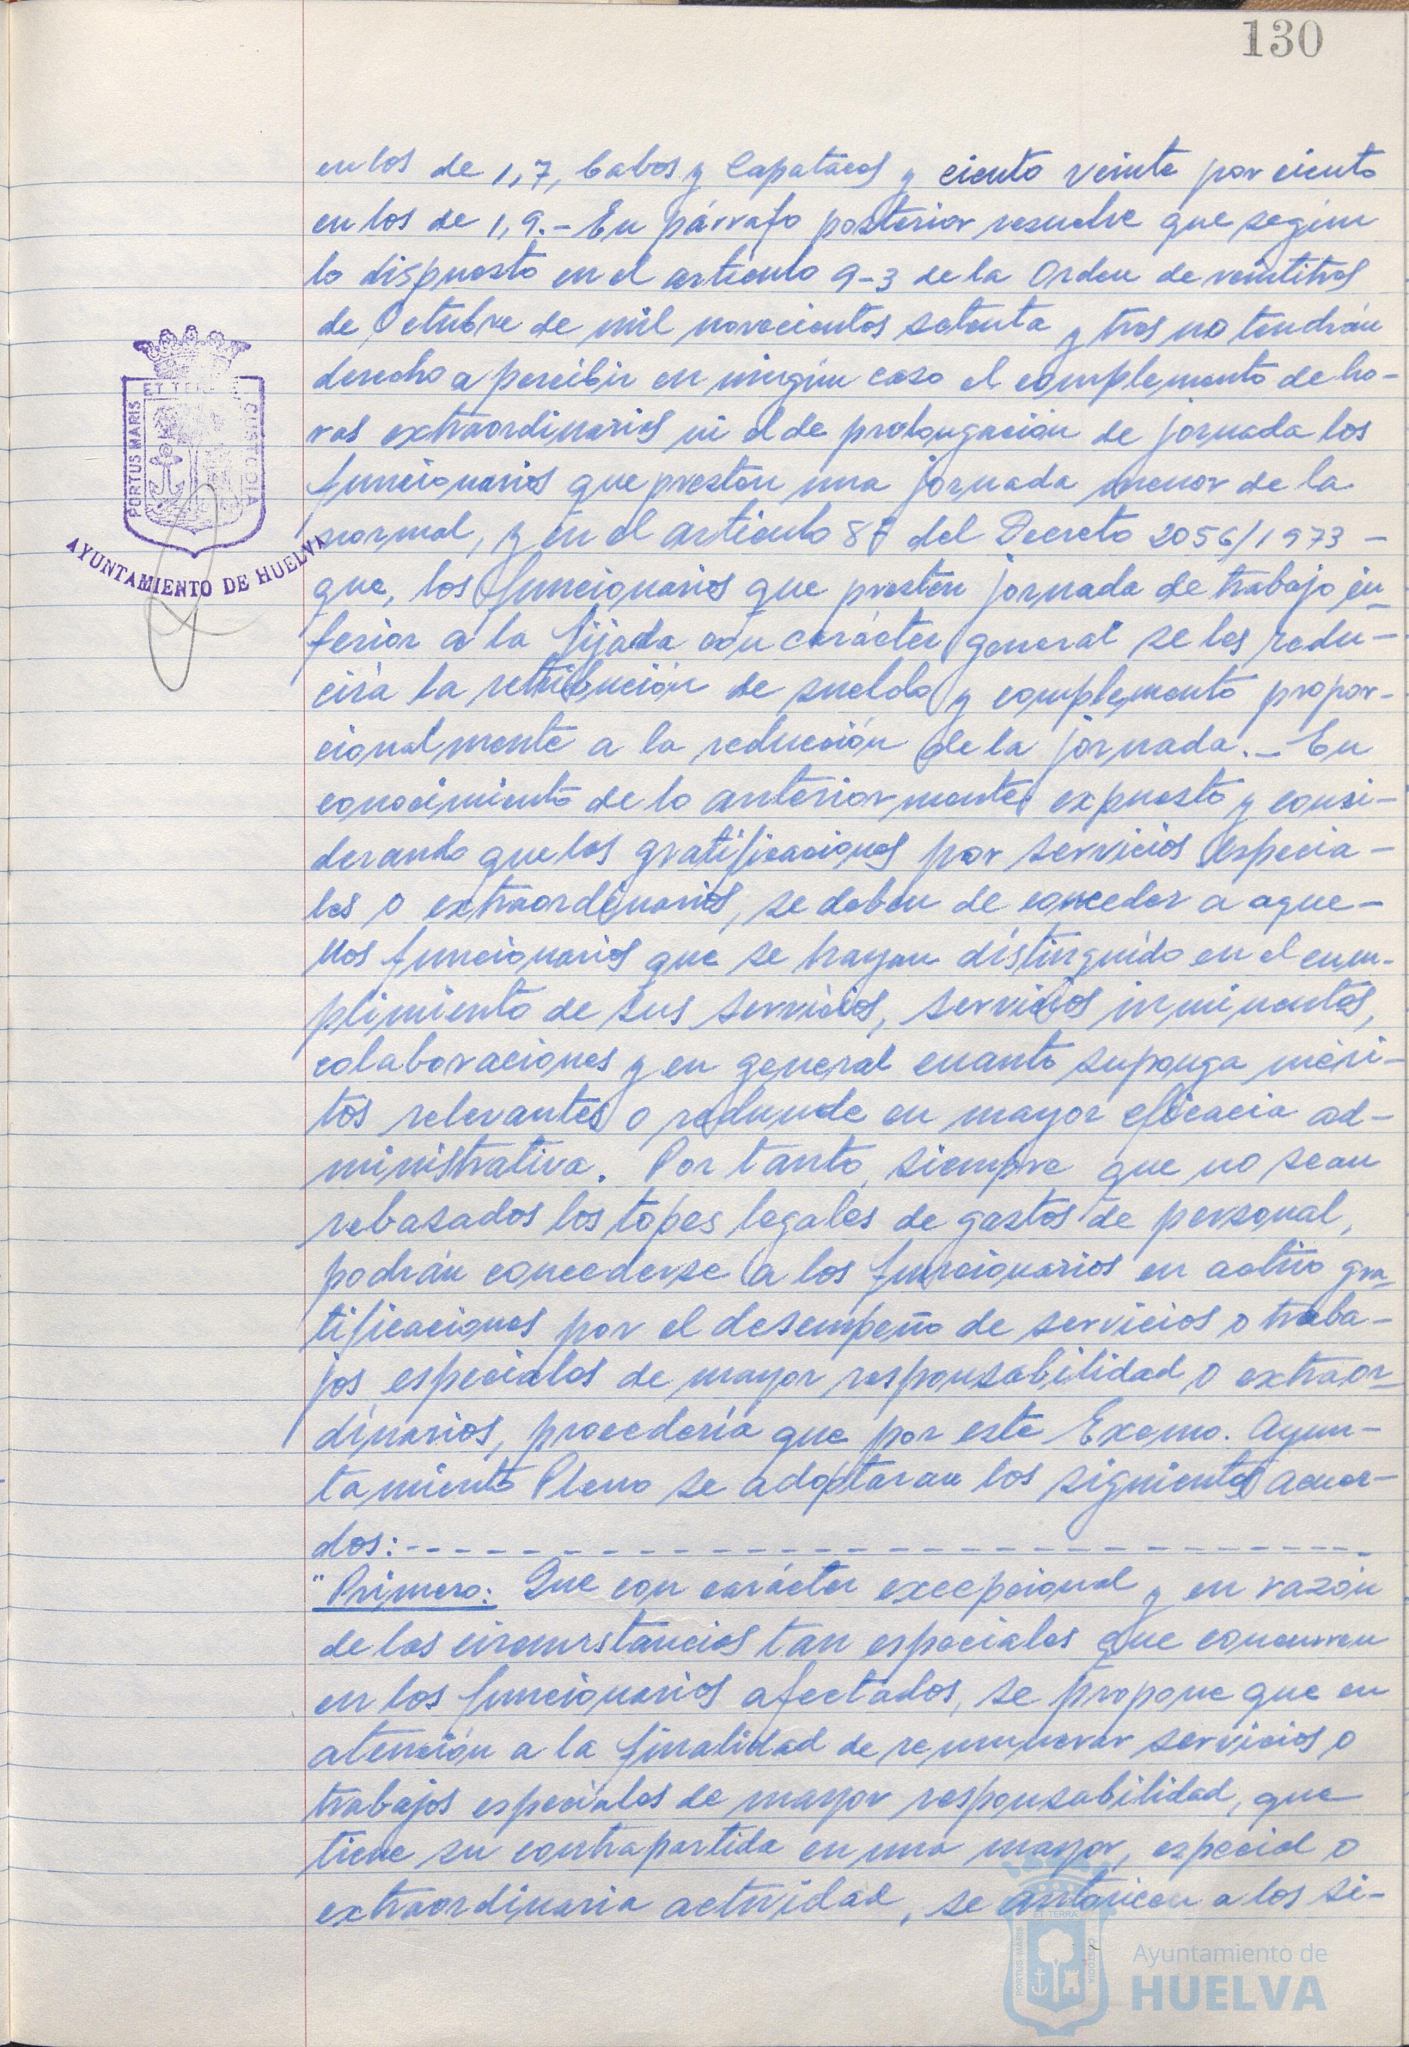 130
en los de 1,7, Cabos y Capataces y ciento veinte por ciento
en los de 1,9.- En párrafo posterior resuelve que según
lo dispuesto en el artículo 9-3 de la Orden de veintitres
de Octubre de mil novecientos setenta y tres no tendrán
derecho a percibir en ningún caso el complemento de ho-
ras extraordinarias ni el de prolongación de jornada los
funcionarios que presten una jornada menor de la
normal, y en el artículo 8º del Decreto 2056/1973 -
que, los funcionarios que presten jornada de trabajo in-
ferior a la fijada con carácter general se les redu-
cirá la retribución de sueldo y complemento propor-
cionalmente a la reducción de la jornada.- En
conocimiento de lo anteriormente expuesto y consi-
derando que las gratificaciones por servicios especia-
les o extraordinarios, se deben de conceder a aque-
llos funcionarios que se hayan distinguido en el cum-
plimiento de sus servicios, servicios inminentes,
colaboraciones y en general cuanto suponga méri-
tos relevantes o redunde en mayor eficacia ad-
ministrativa. Por tanto, siempre que no sean
rebasados los topes legales de gastos de personal,
podrán concederse a los funcionarios en activo gra-
tificaciones por el desempeño de servicios o traba-
jos especiales de mayor responsabilidad o extraor-
dinarios, procedería que por este Excmo. Ayun-
tamiento Pleno se adoptaran los siguientes acuer-
dos:------------------------
"Primero: Que con carácter excepcional y en razón
de las circunstancias tan especiales que concurren
en los funcionarios afectados, se propone que en
atención a la finalidad de remunerar servicios o
trabajos especiales de mayor responsabilidad, que
tiene su contrapartida en una mayor, especial o
extraordinaria actividad, se autoricen a los si-
PORTUS MARIS ET TERRAE CUSTODIA
AYUNTAMIENTO DE HUELVA
PORTUS MARIS ET TERRA CUSTODIA
Ayuntamiento de
HUELVA